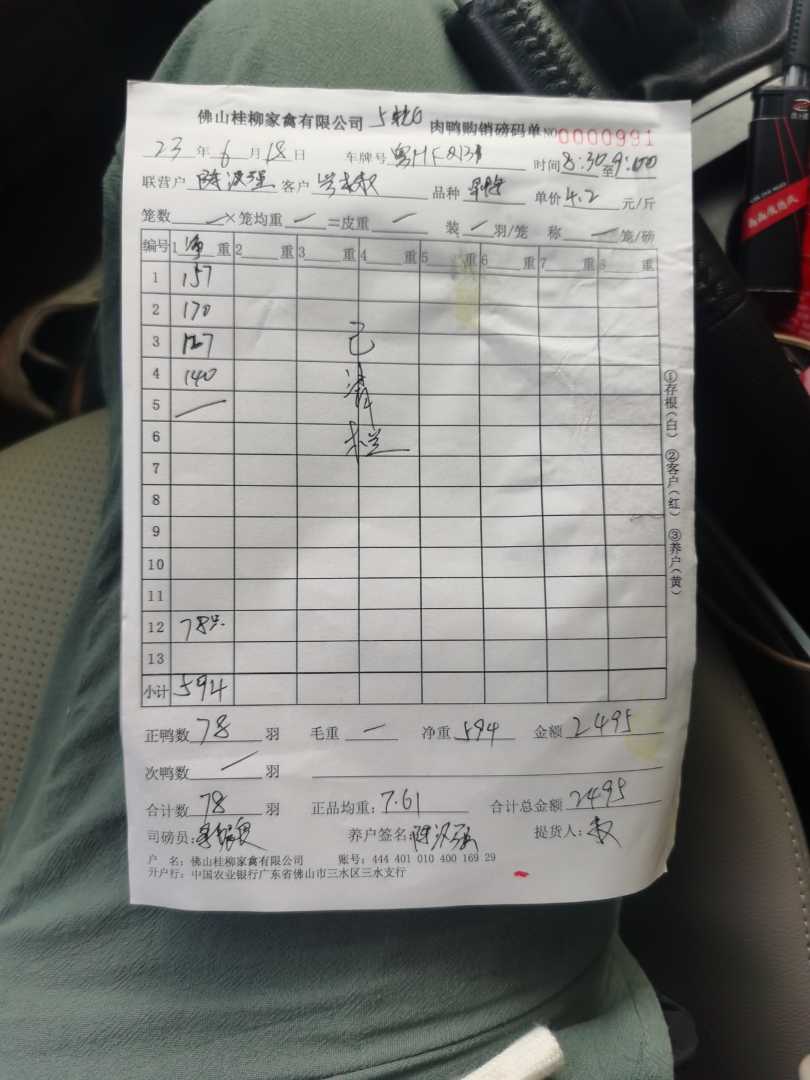 佛山桂柳家禽有限公司 肉鸭购销磅码单 NO 0000991
23 年 6 月 18 日 车牌号 时间 8:30 至 9:00
联营户 陈汉强 客户 品种 单价 4.2 元/斤
笼数 — ×笼均重 — =皮重 — 装 — 羽/笼 称 — 笼/磅
编号 1 净 重 2 重 3 重 4 重 5 重 6 重 7 重 8 重
1 157
2 170
3 127
4 140
5 —
6
7
8
9
10
11
12 78只
13
小计 594
已
清
栏
①存根(白) ②客户(红) ③养户(黄)
正鸭数 78 羽 毛重 — 净重 594 金额 2495
次鸭数 — 羽
合计数 78 羽 正品均重: 7.61 合计总金额 2495
司磅员: 养户签名: 陈汉强 提货人:
户 名: 佛山桂柳家禽有限公司 账号: 444 401 010 400 169 29
开户行: 中国农业银行广东省佛山市三水区三水支行